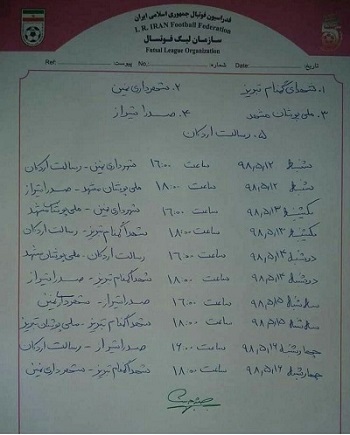 فدراسیون فوتبال جمهوری اسلامی ایران
I. R. IRAN Football Federation
سازمان لیگ فوتسال
Futsal League Organization
Ref: Date: No:
تاریخ: شماره: پیوست:
۱. شهدای گمنام تبریز ۲. شهرداری نمین
۳. ملی پوشان مشهد ۴. صدرا شیراز
۵. رسالت اردکان
شنبه ۹۸,۵,۱۲ ساعت ۱۶:۰۰ شهرداری نمین - رسالت اردکان
شنبه ۹۸,۵,۱۲ ساعت ۱۸:۰۰ ملی پوشان مشهد - صدرا شیراز
یکشنبه ۹۸,۵,۱۳ ساعت ۱۶:۰۰ شهرداری نمین - ملی پوشان مشهد
یکشنبه ۹۸,۵,۱۳ ساعت ۱۸:۰۰ شهدا گمنام تبریز - رسالت اردکان
دوشنبه ۹۸,۵,۱۴ ساعت ۱۶:۰۰ رسالت اردکان - ملی پوشان مشهد
دوشنبه ۹۸,۵,۱۴ ساعت ۱۸:۰۰ شهدا گمنام تبریز - صدرا شیراز
سه شنبه ۹۸,۵,۱۵ ساعت ۱۶:۰۰ صدرا شیراز - شهرداری نمین
سه شنبه ۹۸,۵,۱۵ ساعت ۱۸:۰۰ شهدا گمنام تبریز - ملی پوشان تبریز
چهارشنبه ۹۸,۵,۱۶ ساعت ۱۶:۰۰ صدرا شیراز - رسالت اردکان
چهارشنبه ۹۸,۵,۱۶ ساعت ۱۸:۰۰ شهدا گمنام تبریز - شهرداری نمین